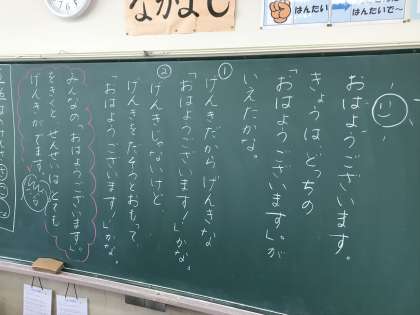 なかよし
はんたい
はんたいで〜
おはようございます。
きょうは、どっちの
「おはようございます。」が
いえたかな。
①
げんきだから げんきな
「おはようございます！」かな。
②
げんきじゃないけど、
げんきをだそうとおもって
「おはようございます！」かな。
みんなの「おはようございます。」
をきくと せんせいは とても
げんきがでます。